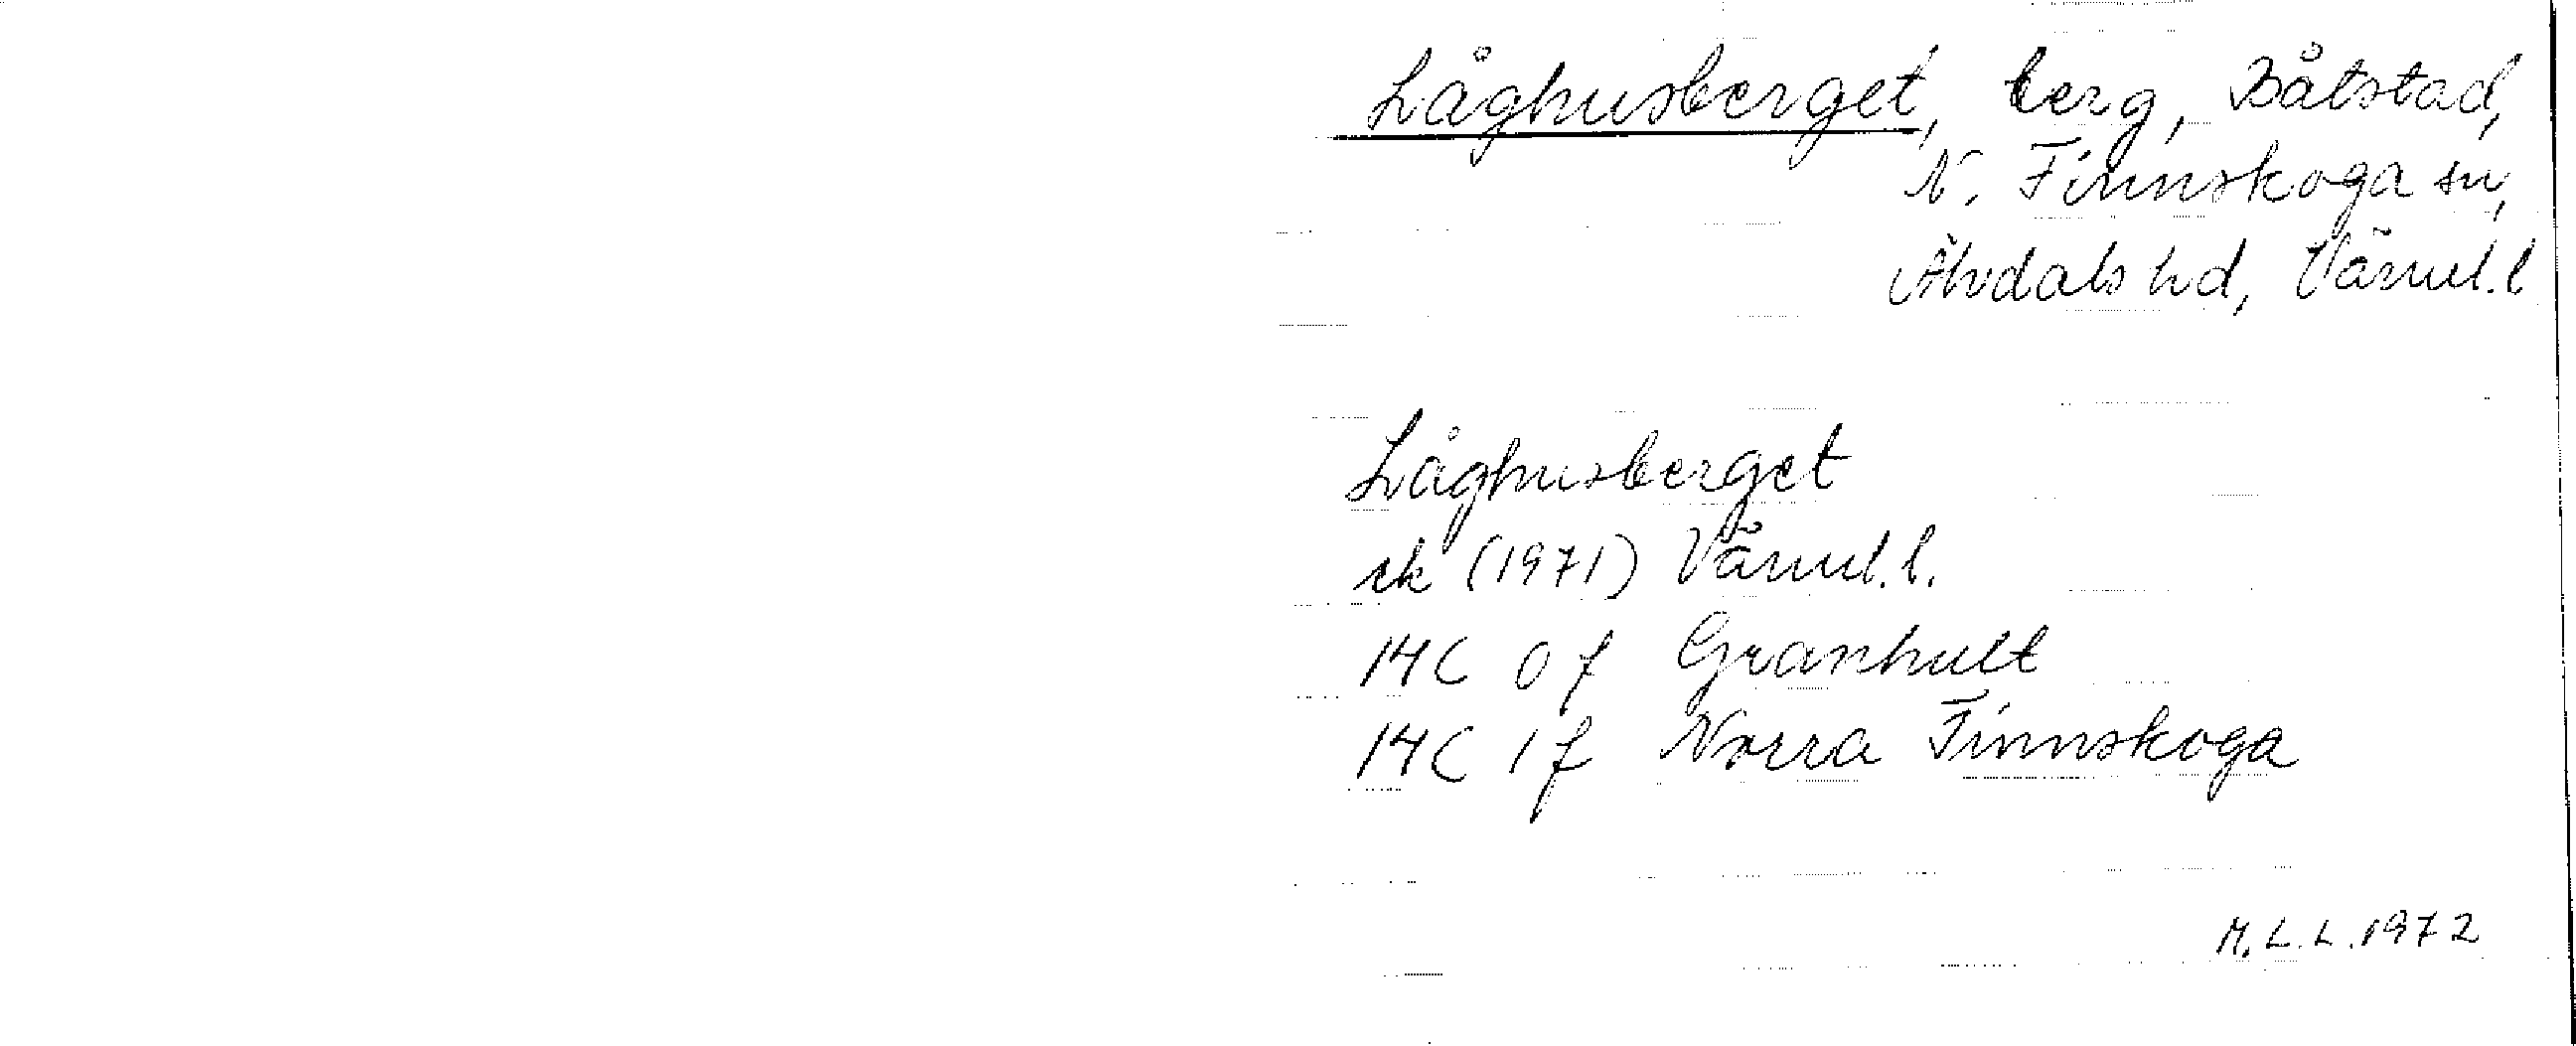 Låghusberget, berg, Båtstad,
N. Finnskoga sn,
Älvdals hd, Värml. l
Låghusberget
ek (1971) Värml. l.
14C 0f Granhult
14C 1f Norra Finnskoga
M.L.L. 1972